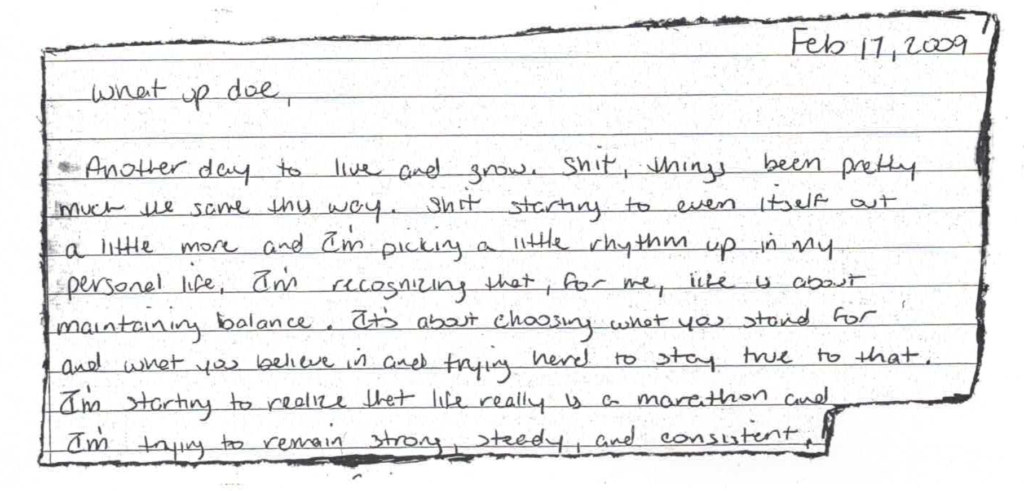 Feb 17, 2009
What up doe,
Another day to live and grow. Shit, things been pretty
much the same thy way. Shit starting to even itself out
a little more and I'm picking a little rhythm up in my
personal life, I'm recognizing that, for me, life is about
maintaining balance. It's about choosing what you stand for
and what you believe in and trying hard to stay true to that.
I'm starting to realize that life really is a marathon and
I'm trying to remain strong, steady, and consistent.